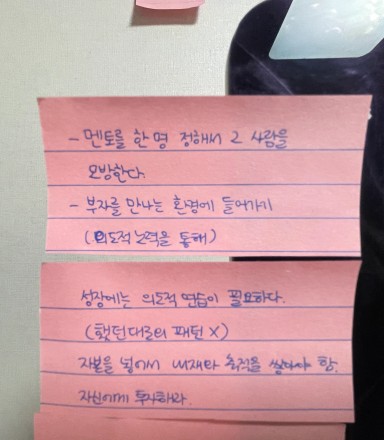 - 멘토를 한명 정해서 그 사람을
모방한다.
- 부자를 만나는 환경에 들어가기
(의도적 노력을 통해)
성장에는 의도적 연습이 필요하다.
(했던대로의 패턴 X)
자본을 넣어서 내재화 축적을 쌓아야 함.
자신에게 투자하라.